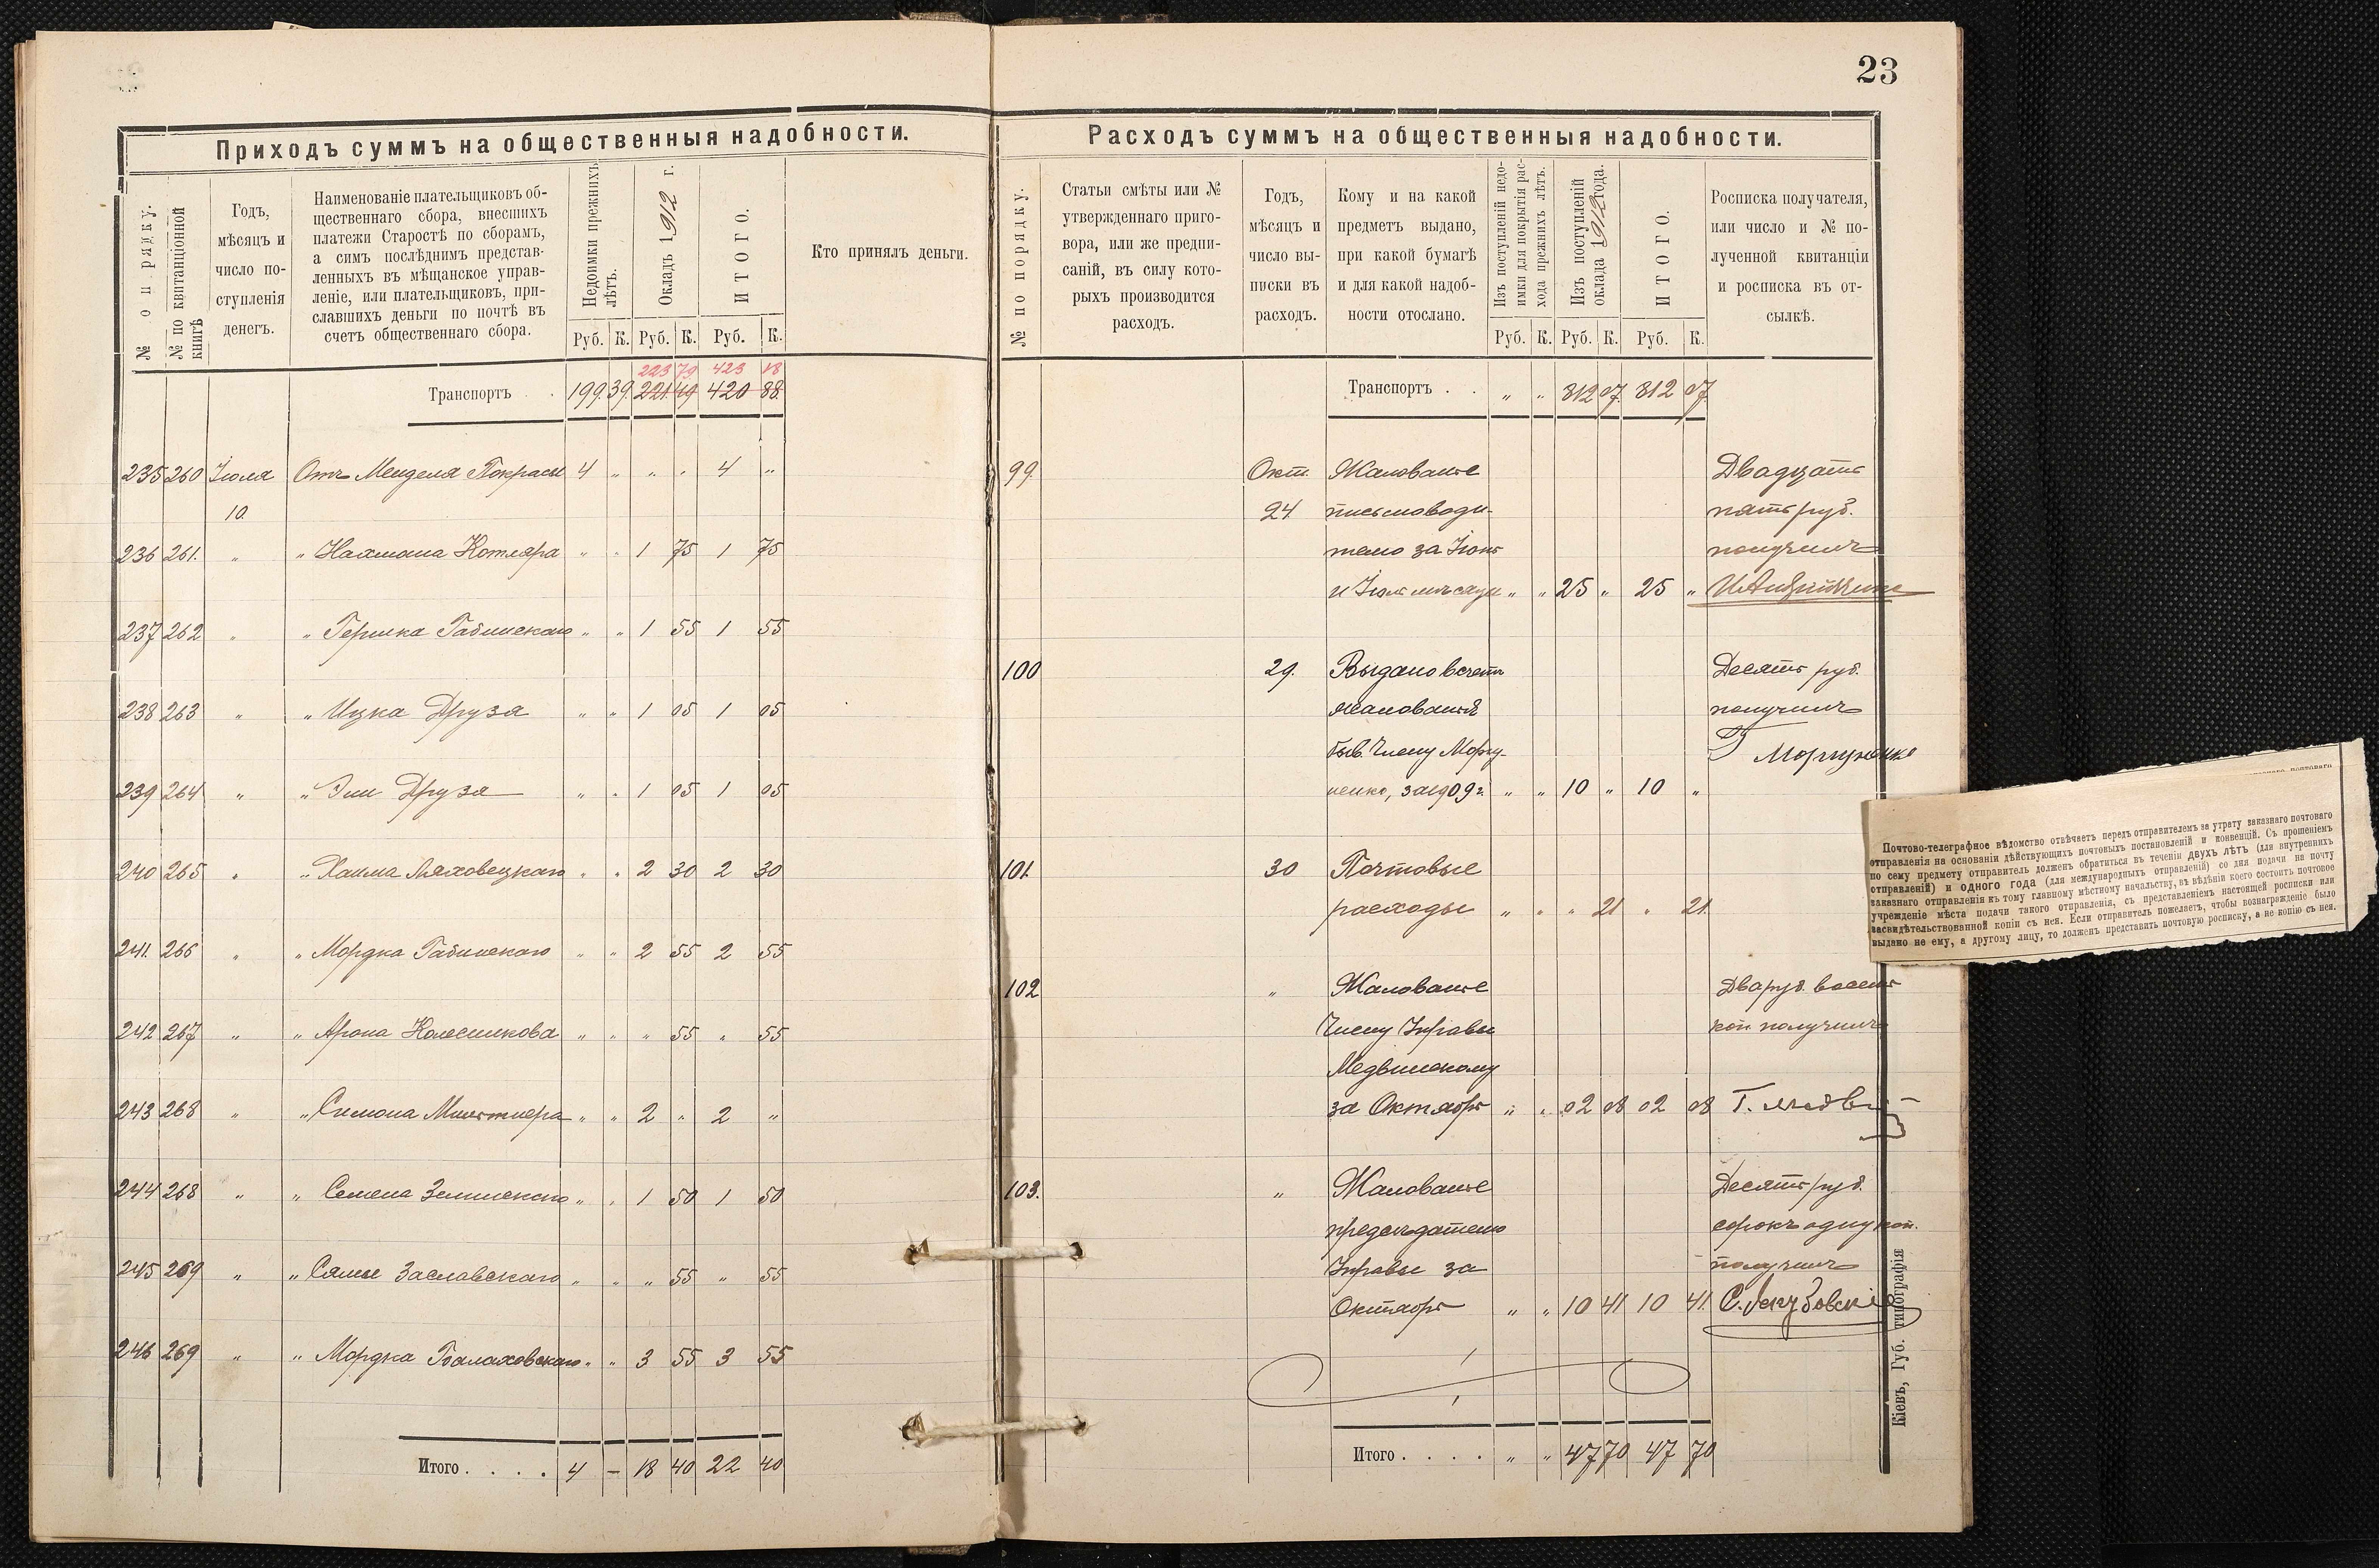 23
Приходъ суммъ на общественныя надобности.
№ о п рядку.
№ по квитанціонной книгѣ
Годъ,
мѣсяцъ и
число по-
ступленія
денегъ.
Наименованіе плательщиковъ об-
щественнаго сбора, внесшихъ
платежи Старостѣ по сборамъ,
а симъ послѣднимъ представ-
ленныхъ въ мѣщанское управ-
леніе, или плательщиковъ, при-
славшихъ деньги по почтѣ въ
счетъ общественнаго сбора.
Недоимки прежнихъ
лѣтъ.
Окладъ 1912 г.
ИТОГО.
Кто принялъ деньги.
Руб. К. Руб. К. Руб. К.
223 79 423 18
Транспортъ . 199. 39. 221. 49 420 88.
235 260 Іюля Отъ Менделя Покрасы 4 " " " 4 "
10.
236 261. " " Нахмана Котляра " " 1 75 1 75
237 262 " " Гершка Габинскаго " " 1 55 1 55
238 263 " " Ицка Друзя " " 1 05 1 05
239 264 " " Эли Друзя " " 1 05 1 05
240 265 " " Хаима Ляховецкаго " " 2 30 2 30
241. 266 " " Мордка Габинскаго " " 2 55 2 55
242 267 " " Арона Колесникова " " " 55 " 55
243 268 " " Симона " " 2 " 2 "
244 268 " " Семена Зелинскаго " " 1 50 1 50
245 269 " " Заславскаго " " " 55 " 55
246 269 " " Мордка Балаховскаго " " 3 55 3 55
Итого . . . . 4 — 18 40 22 40
Расходъ суммъ на общественныя надобности.
№ по порядку.
Статьи смѣты или №
утвержденнаго приго-
вора, или же предпи-
саній, въ силу кото-
рыхъ производится
расходъ.
Годъ,
мѣсяцъ и
число вы-
писки въ
расходъ.
Кому и на какой
предметъ выдано,
при какой бумагѣ
и для какой надоб-
ности отослано.
Изъ поступленій недо-
имки для покрытія рас-
хода прежнихъ лѣтъ.
Изъ поступленій
оклада 1912 года.
ИТОГО.
Росписка получателя,
или число и № по-
лученной квитанціи
и росписка въ от-
сылкѣ.
Руб. К. Руб. К. Руб. К.
Транспортъ . . " " 812 07. 812 07.
99. Окт. Жалованье Двадцать
24 письмоводи- пять руб.
телю за Іюнь получилъ
и Іюль мѣсяцы " " 25 " 25 "
100 29. Выдано в счетъ Десять руб.
жалованья получилъ
быв. Члену Моргу- Г Моргуненко
ненко, за 1909 г. " " 10 " 10 "
101. 30 Почтовые
расходы " " " 21 " 21.
102 " Жалованье Два руб. восемь
Члену Управы коп получилъ
Медвинскому
за Октябрь " " 02 08 02 08
103. " Жалованье Десять руб.
предсѣдателю сорокъ одну коп.
Управы за получилъ
Октябрь " " 10 41 10 41. С. Якубовскій
Итого . . . . " " 47 70 47 70
Кіевъ, Губ. типографія
Почтово-телеграфное вѣдомство отвѣчаетъ передъ отправителемъ за утрату заказнаго почтоваго
отправленія на основаніи дѣйствующихъ почтовыхъ постановленій и конвенцій. Съ прошеніемъ
по сему предмету отправитель долженъ обратиться въ теченіи двухъ лѣтъ (для внутреннихъ
отправленій) и одного года (для международныхъ отправленій) со дня подачи на почту
заказнаго отправленія къ тому главному мѣстному начальству, въ вѣдѣніи коего состоитъ почтовое
учрежденіе мѣста подачи такого отправленія, съ представленіемъ настоящей росписки или
засвидѣтельствованной копіи съ нея. Если отправитель пожелаетъ, чтобы вознагражденіе было
выдано не ему, а другому лицу, то долженъ представить почтовую росписку, а не копію съ нея.